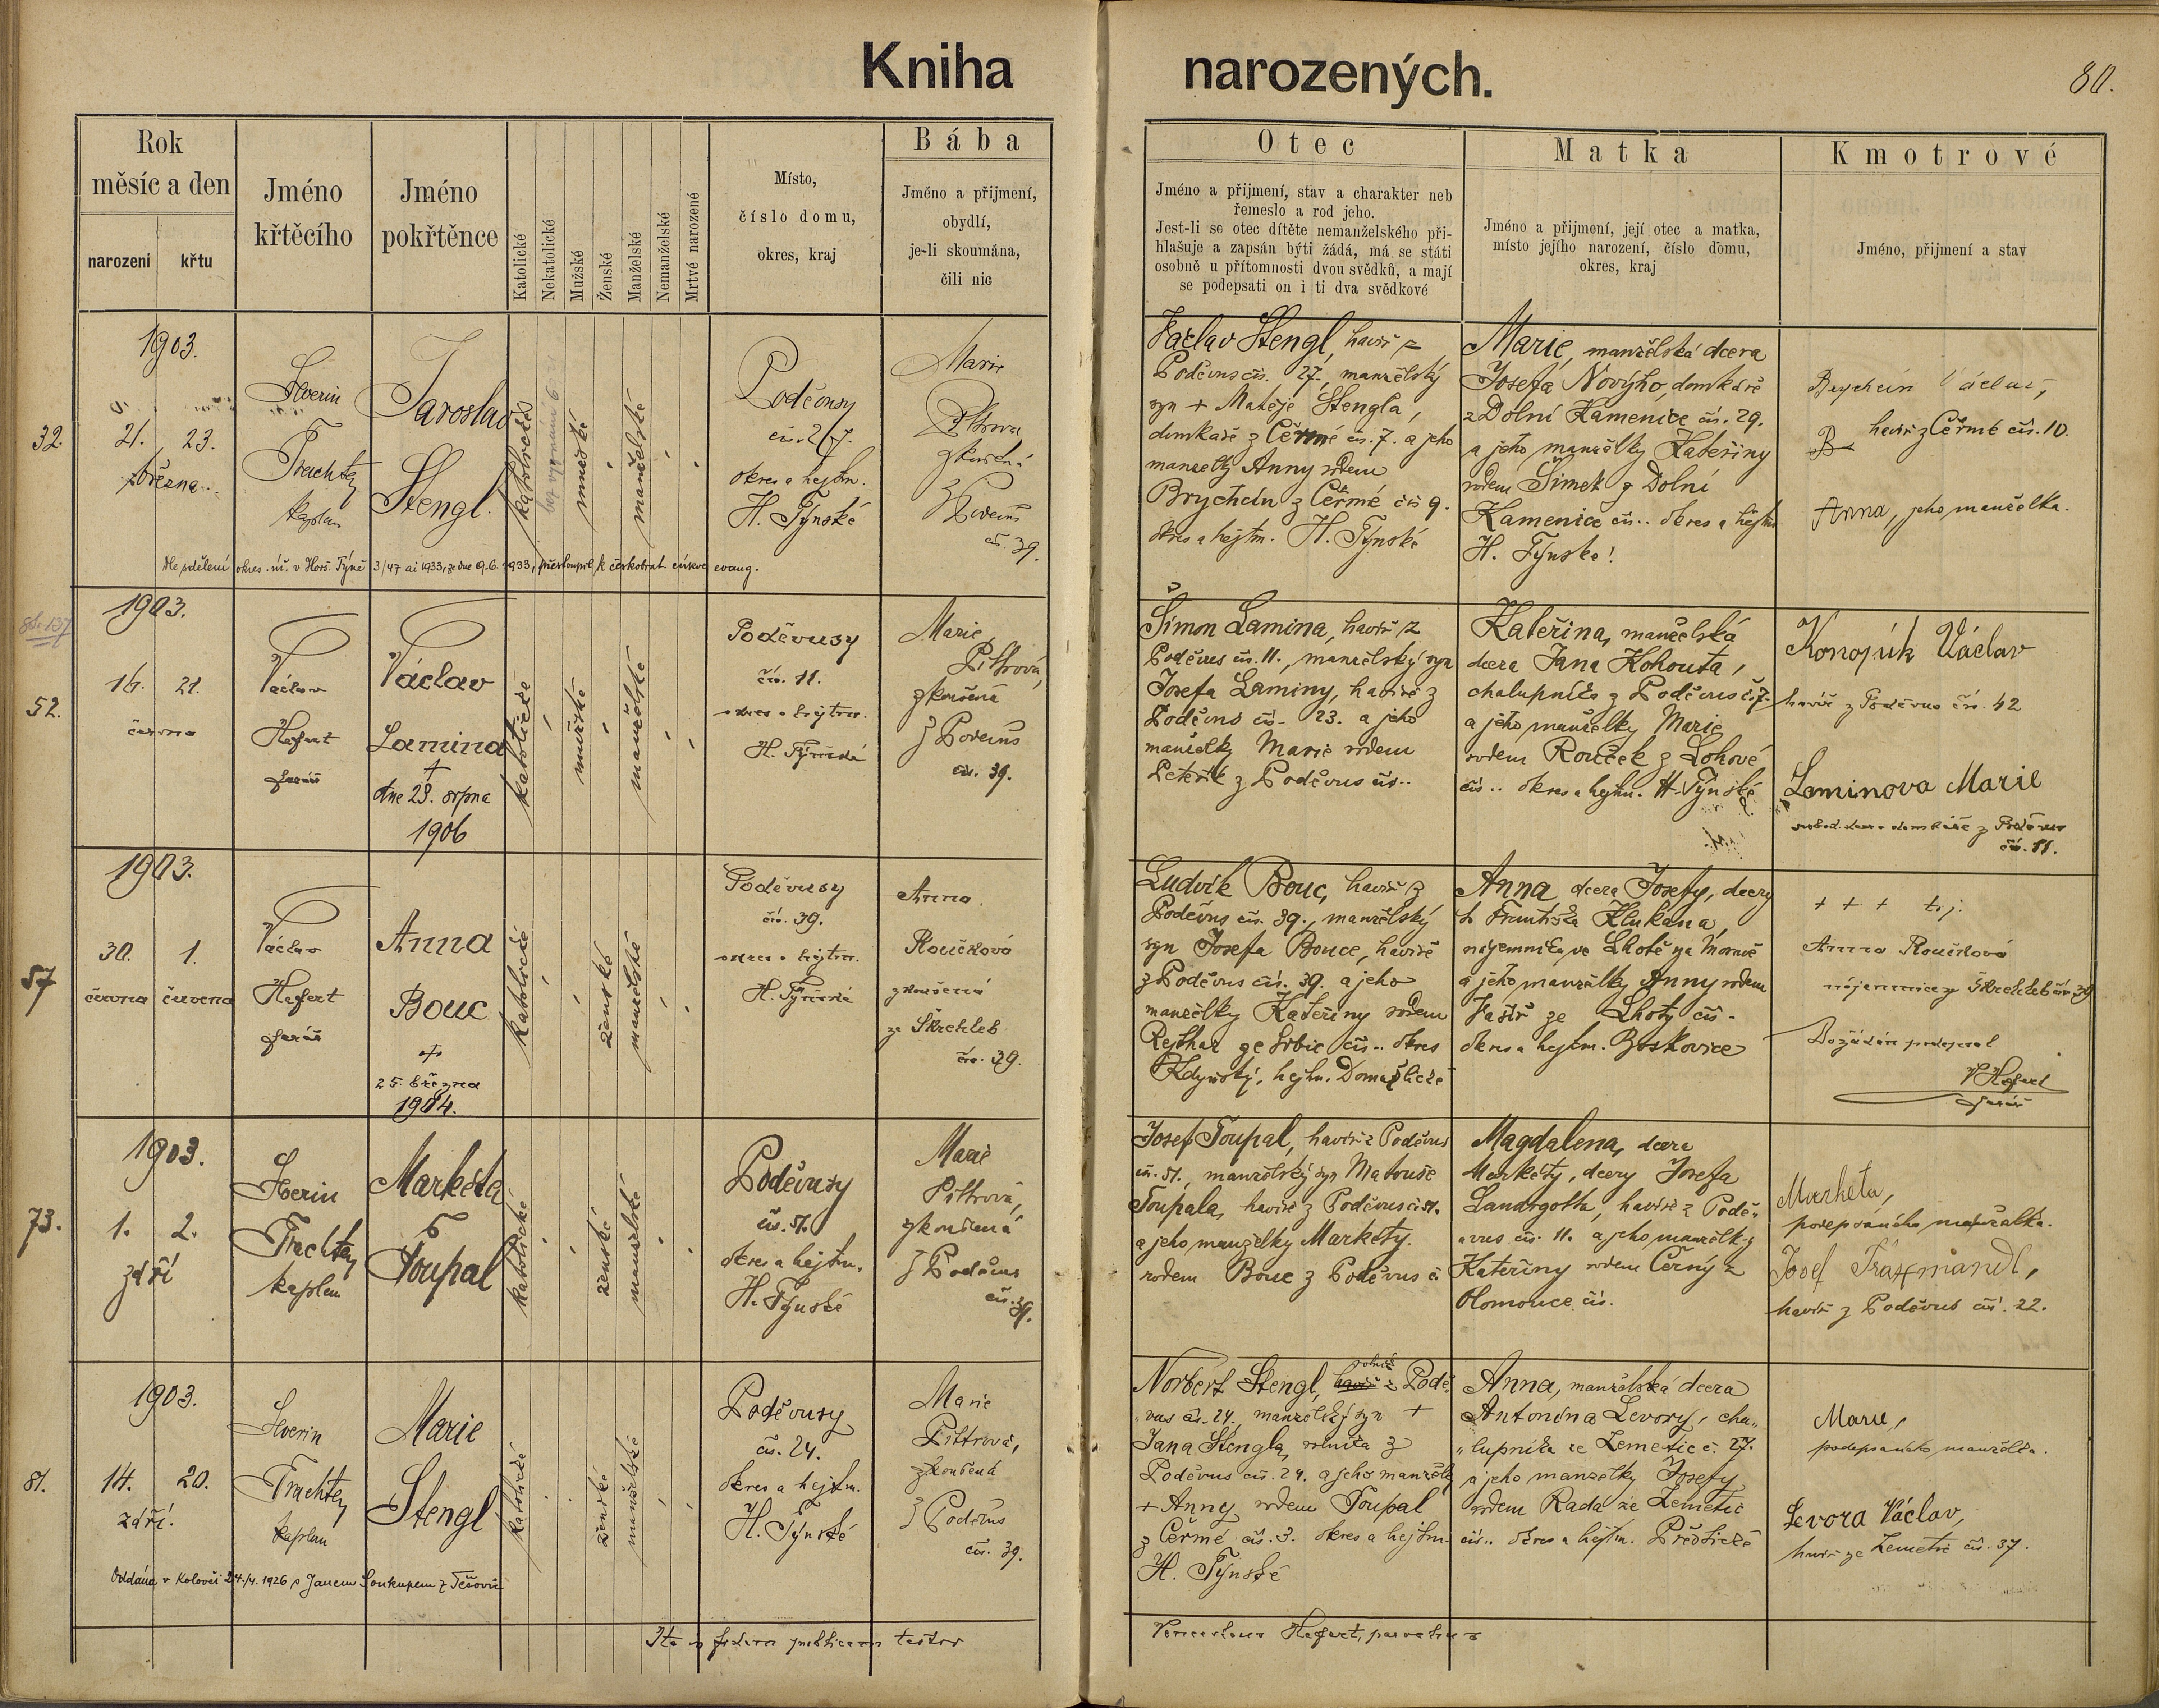 Kniha narozených.
80.
Rok
měsíc a den
narození
křtu
Jméno
křtěcího
Jméno
pokřtěnce
Katolické
Nekatolické
Mužské
Ženské
Manželské
Nemanželské
Mrtvé narozené
Místo,
číslo domu,
okres, kraj
Bába
Jméno a přijmení,
obydlí,
je-li skoumána,
čili nic
Otec
Jméno a přijmení, stav a charakter neb
řemeslo a rod jeho.
Jest-li se otec dítěte nemanželského při-
hlašuje a zapsán býti žádá, má se státi
osobně u přítomnosti dvou svědků, a mají
se podepsati on i ti dva svědkové
Matka
Jméno a přijmení, její otec a matka,
místo jejího narození, číslo domu,
okres, kraj
Kmotrové
Jméno, přijmení a stav
32.
1903.
21. 23.
března
Trachta
kaplan
Jaroslav
Stengl.
katolické
mužské
manželské
Poděvousy
čís. 27.
okres a hejtm.
H. Týnské
Marie
zkoušená
z Poděvus
čís. 39.
Václav Stengl, havíř z
Poděvus čís. 27., manželský
syn + Matěje Stengla,
domkaře z Čèrmé čís. 7. a jeho
manželky Anny rodem
Brychcín z Čèrmé čís 9.
okres a hejtm. H. Týnské
Marie, manželská dcera
Josefa Nového, domkáře
z Dolní Kamenice čís. 29.
a jeho manželky Kateřiny
rodem Šimek z Dolní
Kamenice čís.. okres a hejtm
H. Týnské!
Brychcín Václav,
havíř z Čèrmé čís. 10.
Anna, jeho manželka.
Dle sdělení okres. úř. v Horš. Týně 3/47 ai 1933, ze dne 9.6. 1933, přestoupil k českobrat. církvi evang.
52.
1903.
16. 21.
června
Václav
Hefert
farář
Václav
Lamina
+
dne 23. srpna
1906
katolické
mužské
manželské
Poděvusy
čís. 11.
okres a hejtm.
H. Týnské
Marie
Pittrová,
zkoušená
z Poděvus
čís. 39.
Šimon Lamina, havíř z
Poděvus čís. 11., manželský syn
Josefa Laminy, havíře z
Poděvus čís. 23. a jeho
manželky Marie rodem
Peteřík z Poděvus čís..
Kateřina, manželská
dcera Jana Kohouta,
chalupníka z Poděvus č. 7.
a jeho manželky Marie
rodem Rouček z Lohové
čís.. okres a hejtm. H. Týnské
Konopík Václav
havíř z Poděvus čís. 42
Laminova Marie
svobod. dcera domkáře z Poděvus
čís. 11.
57
1903.
30. 1.
června července
Václav
Hefert
farář
Anna
Bouc
+
25. března
1904.
katolické
ženské
manželské
Poděvusy
čís. 39.
okres a hejtm.
H. Týnské
Anna
Roučková
zkoušená
ze Škrchleb
čís. 39.
Ludvík Bouc, havíř z
Poděvus čís. 39., manželský
syn Josefa Bouce, havíře
z Poděvus čís. 39. a jeho
manželky Kateřiny rodem
Rejthar ze Srbic čís.. okres
Kdyňský, hejtm. Domažlické
Anna dcera Josefy, dcery
Františka Klukana,
nájemníka ve Lhotě na Moravě
a jeho manželky Anny rodem
ze Lhoty čís.
okres a hejtm. Boskovice
+ + + t.j.
Anna Roučková
nájemnice ze Škrchleb čís. 39
Dožádán podepsal
V Hefert
farář
73.
1903.
1. 2.
září
Trachta
kaplan
Markéta
Toupal
katolické
ženské
manželské
Poděvusy
čís. 51.
okres a hejtm.
H. Týnské
Marie
Pittrová,
zkoušená
z Poděvus
čís. 39.
Josef Toupal, havíř z Poděvus
čís. 51., manželský syn Matouše
Toupala, havíře z Poděvus čís 51.
a jeho manželky Markéty.
rodem Bouc z Poděvus č
Magdalena, dcera
Markéty, dcery Josefa
Landgotta, havíře z Podě-
vus. čís. 11. a jeho manželky
Kateřiny rodem Černý z
Olomouce čís.
Markéta,
podepsaného manželka.
Josef
havíř z Poděvus čís. 22.
81.
1903.
14. 20.
září.
Trachta
kaplan
Marie
Stengl
katolické
ženské
manželské
Poděvusy
čís. 24.
okres a hejtm.
H. Týnské
Marie
Pittrová,
zkoušená
z Poděvus
čís. 39.
Norbert Stengl, rolník havíř z Podě-
vus čís. 24. manželský syn +
Jana Stengla, rolníka z
Poděvus čís. 24. a jeho manželky
+ Anny rodem Toupal
z Čèrmé čís. 3. okres a hejtm.
H. Týnské
Anna, manželská dcera
Antonína Levory, cha-
lupníka ze Zemětic č. 27.
a jeho manželky Josefy
rodem Rada ze Zemětic
čís.. okres a hejtm. Přeštické
Marie,
podepsaného manželka.
Levora Václav,
havíř ze Zemětic čís. 37.
Oddána v Koloveči 24./4. 1926 s Janem Soukupem z Těšovic
Ita in fidem publicam testor
Venceslaus Hefert, parochus